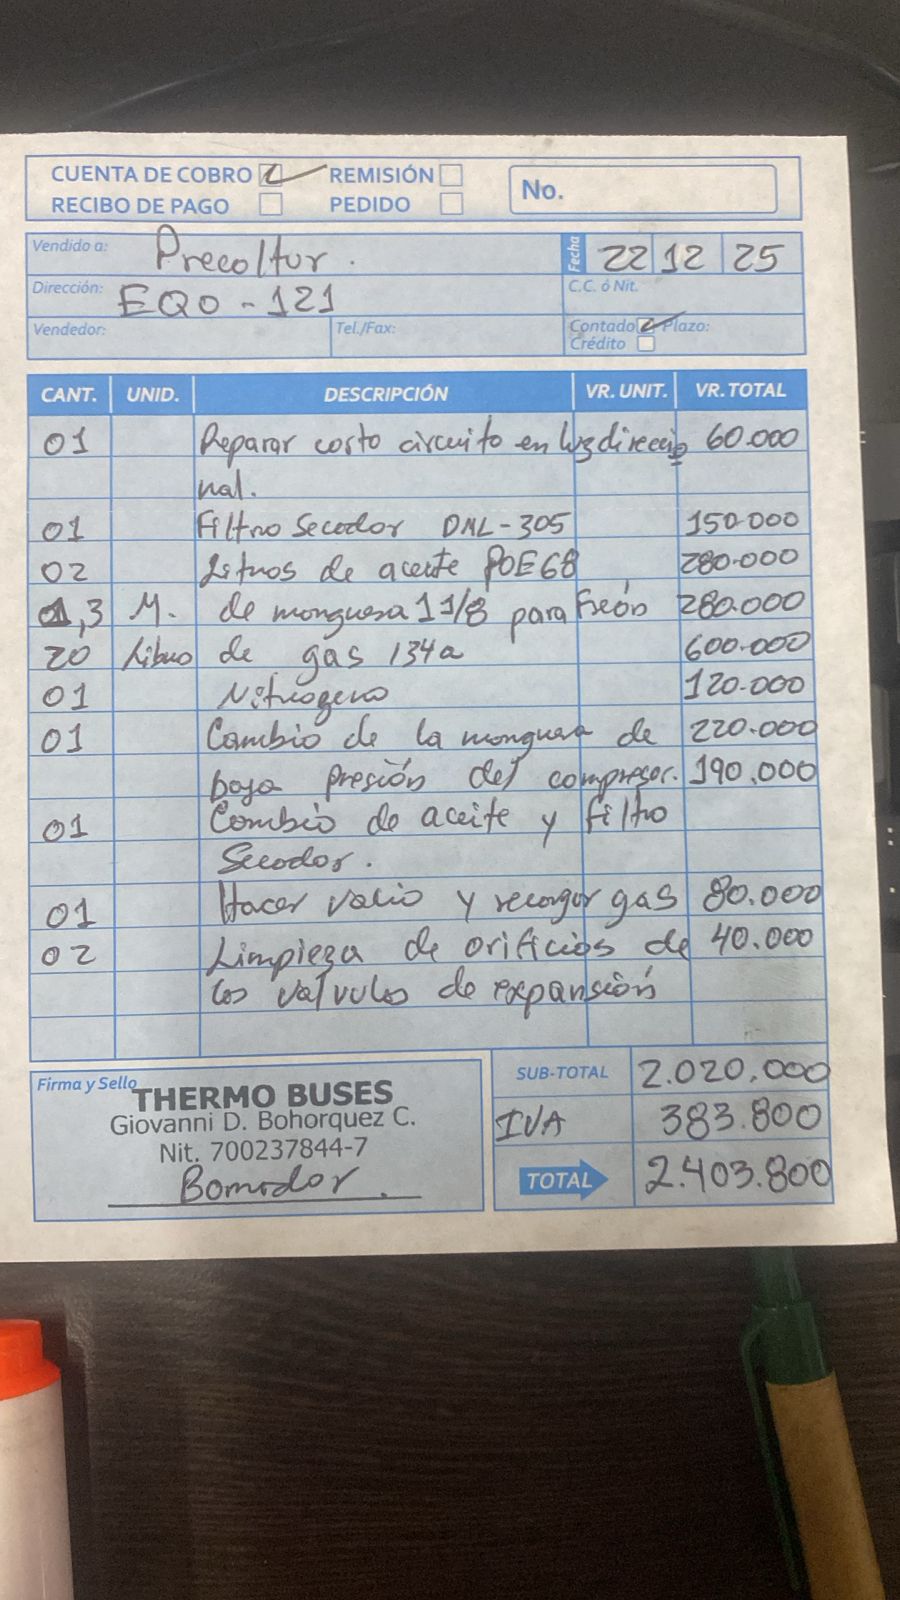 CUENTA DE COBRO REMISIÓN No.
RECIBO DE PAGO PEDIDO
Vendido a: Precoltur. Fecha 22 12 25
Dirección: EQO-121 C.C. ó Nit.
Vendedor: Tel./Fax: Contado Plazo:
Crédito
CANT. UNID. DESCRIPCIÓN VR. UNIT. VR. TOTAL
01 Reparar corto circuito en luz direccio 60.000
nal.
01 Filtro Secador DML-305 150.000
02 Litros de aceite POE68 280.000
1,3 M. de manguera 1 1/8 para Freón 280.000
20 Libras de gas 134a 600.000
01 Nitrogeno 120.000
01 Cambio de la manguera de 220.000
baja presión del compresor. 190.000
01 Cambio de aceite y filtro
Secador.
01 Hacer vacio y recargar gas 80.000
02 Limpieza de orificios de 40.000
las valvulas de expansión
Firma y Sello SUB-TOTAL 2.020.000
THERMO BUSES
Giovanni D. Bohorquez C. IVA 383.800
Nit. 700237844-7
TOTAL 2.403.800